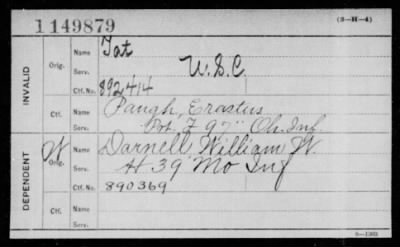 (3-H-4)
1149879
INVALID
Orig.
Name Tat
Serv. U.S.C.
Ctf. No. 892414
Ctf.
Name Paugh, Erastus
Serv. Pvt. F 97" Oh. Inf
DEPENDENT
W
Orig.
Name Darnell, William W.
Serv. H 39" Mo Inf
Ctf. No. 890369
Ctf.
Name
Serv.